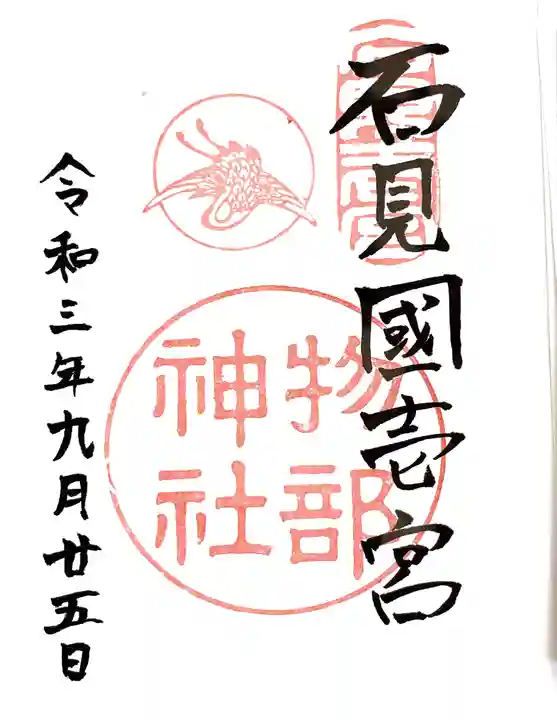 石見國壱宮
物部
神社
令和三年九月廿五日